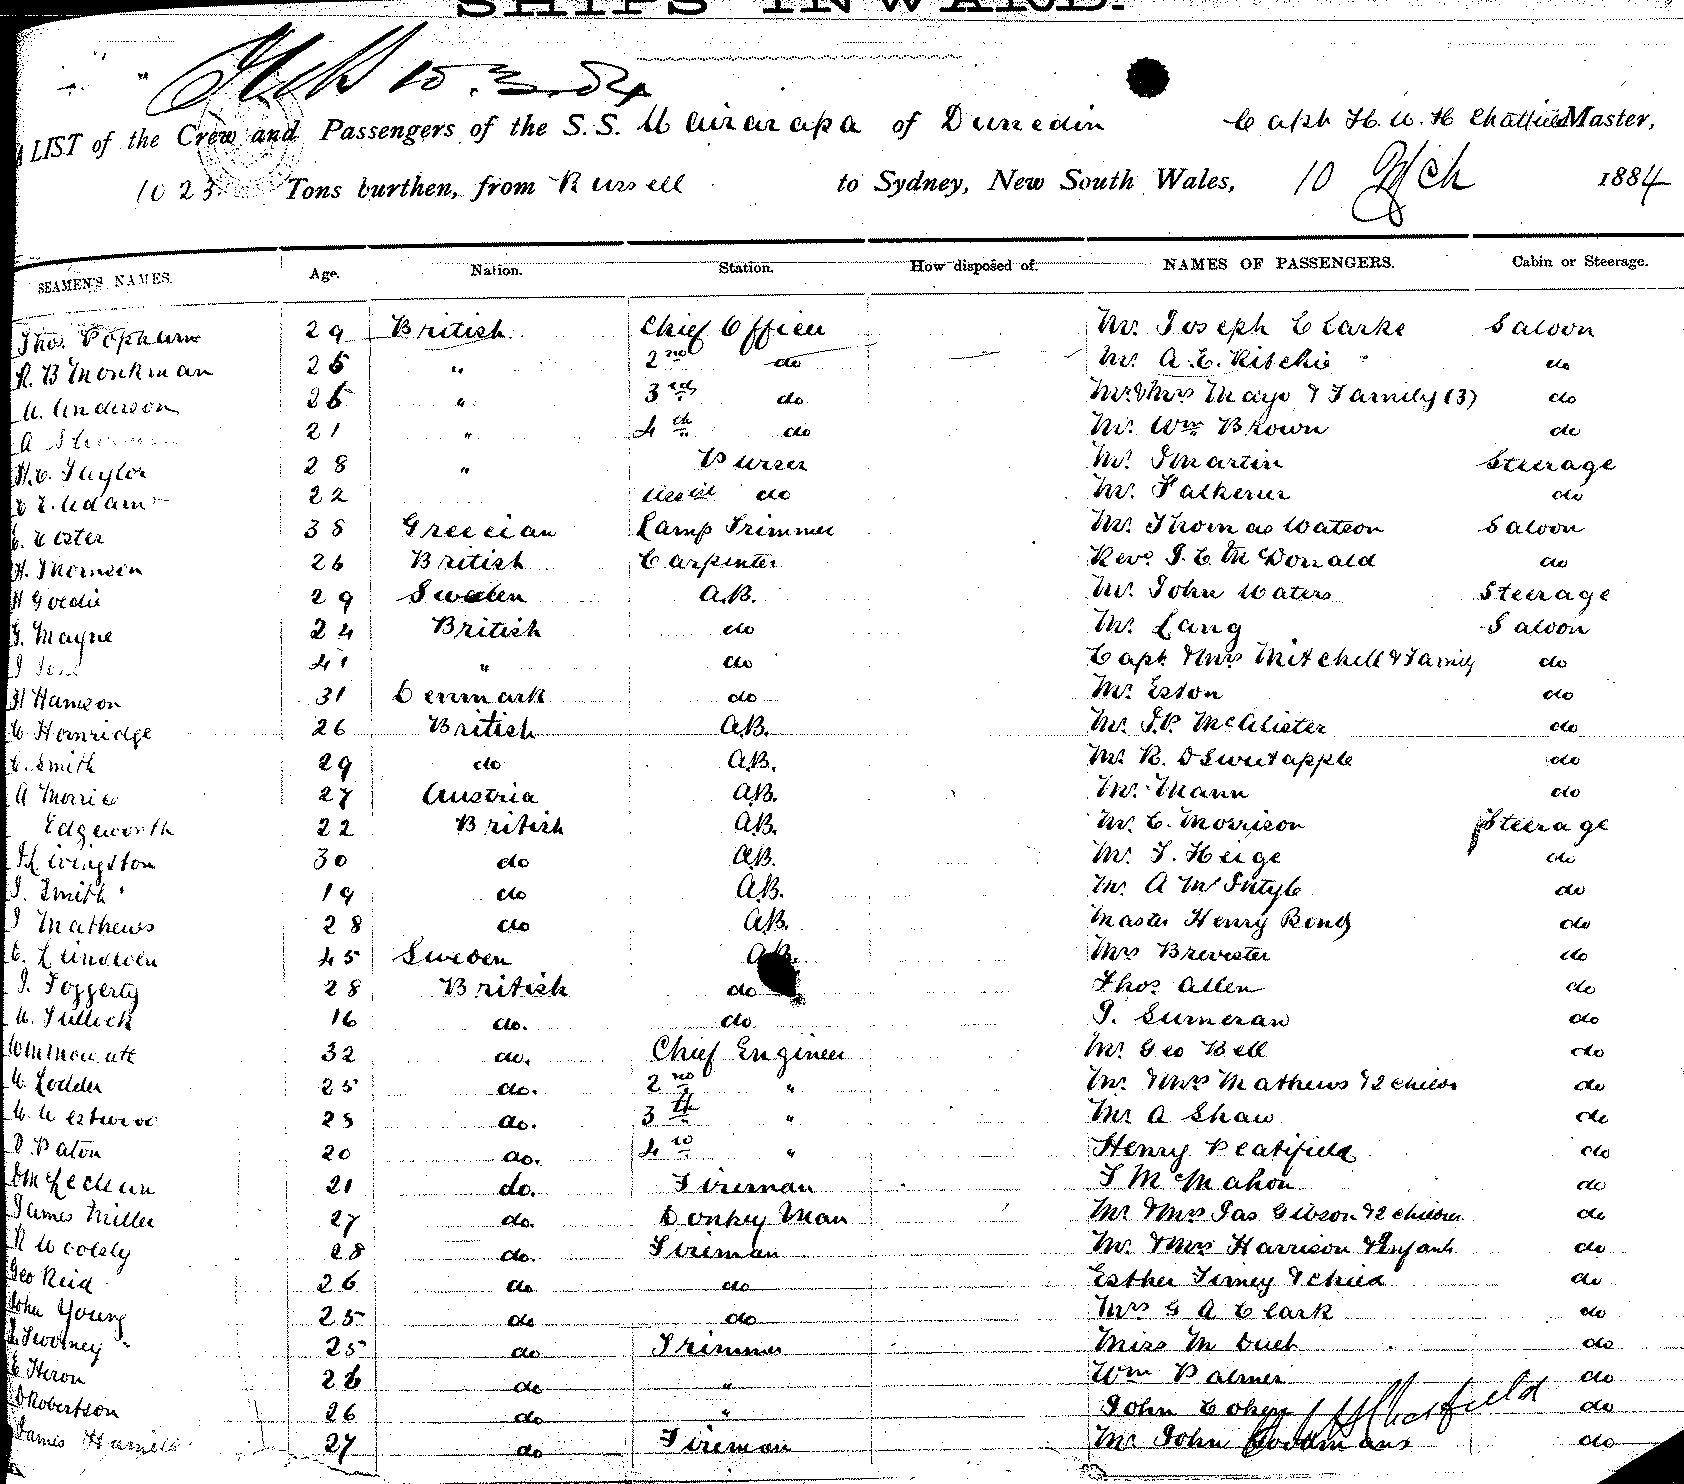 SHIPS INWARD.
15.3.84
LIST of the Crew and Passengers of the S.S. Wairarapa of Dunedin Capt H. W. H Chatfield Master,
1023 Tons burthen, from Russell to Sydney, New South Wales, 10 Mch 1884
SEAMEN'S NAMES. Age. Nation. Station. How disposed of. NAMES OF PASSENGERS. Cabin or Steerage.
Thos. Popham 29 British Chief Officer Mr. Joseph Clarke Saloon
R. B Monkman 25 " 2nd do Mr. A. E. Ritchie do
W. Anderson 25 " 3rd do Mr & Mrs Mayo & Family (3) do
A 21 " 4th do Mr. Wm Brown do
H. C. Taylor 28 " Purser Mr. J Martin Steerage
Adams 22 Assist do Mr. Falkener do
C. Coster 38 Greecian Lamp Trimmer Mr. Thomas Watson Saloon
H. Thomson 26 British Carpenter Revd J. E McDonald do
H Goldie 29 Sweden A.B. Mr. John Waters Steerage
G. Mayne 24 British do Mr. Lang Saloon
J 41 " do Capt & Mrs Mitchell & Family do
H Hanson 31 Denmark do Mr. Eston do
C Hornridge 26 British A.B. Mr. J. P. McAlister do
C. Smith 29 do A.B. Mr. R. D Sweetapple do
A Morris 27 Austria A.B. Mr. Mann do
Edgeworth 22 British A.B. Mr. C. Morrison Steerage
J Livingston 30 do A.B. Mr. T. Heige do
J. Smith 19 do A.B. Mr. A McIntyle do
J Mathews 28 do A.B. Master Henry Bond do
C. Lindeen 45 Sweden A.B. Mrs Brewster do
J. Foggerty 28 British do Thos Allen do
W. Tullick 16 do. do J. Sumeran do
32 do. Chief Engineer Mr. Geo Bell do
W. Lodder 25 do. 2nd " Mr. & Mrs Mathews & 2 childn do
W. Westwood 25 do. 3th " Mr A Shaw do
D. Paton 20 do. 4th " Henry Peatifield do
21 do. Fireman T McMahon do
James Miller 27 do. Donkey Man Mr & Mrs Jas Gibson & 2 children do
R Woolsly 28 do. Fireman Mr. & Mrs Harrison & Infant do
Geo Reid 26 do do Esther Tirney & child do
John Young 25 do do Mrs G A Clark do
Twomey 25 do Trimmer Miss M Duck do
C Heron 26 do " Wm Palmer do
D Robertson 26 do " John Cohen do
James Hamill 27 do Fireman Mr John Goodmans do
H Chatfield